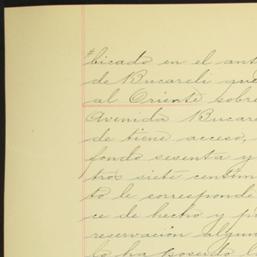 bicado en el ant
de Bucareli que
al Oriente sobre
Avenida Bucare
de tiene acceso,
fondo sesenta y
tros siete centím
to le corresponde
ce de hecho y p
reservación algun
lo ha poseido l